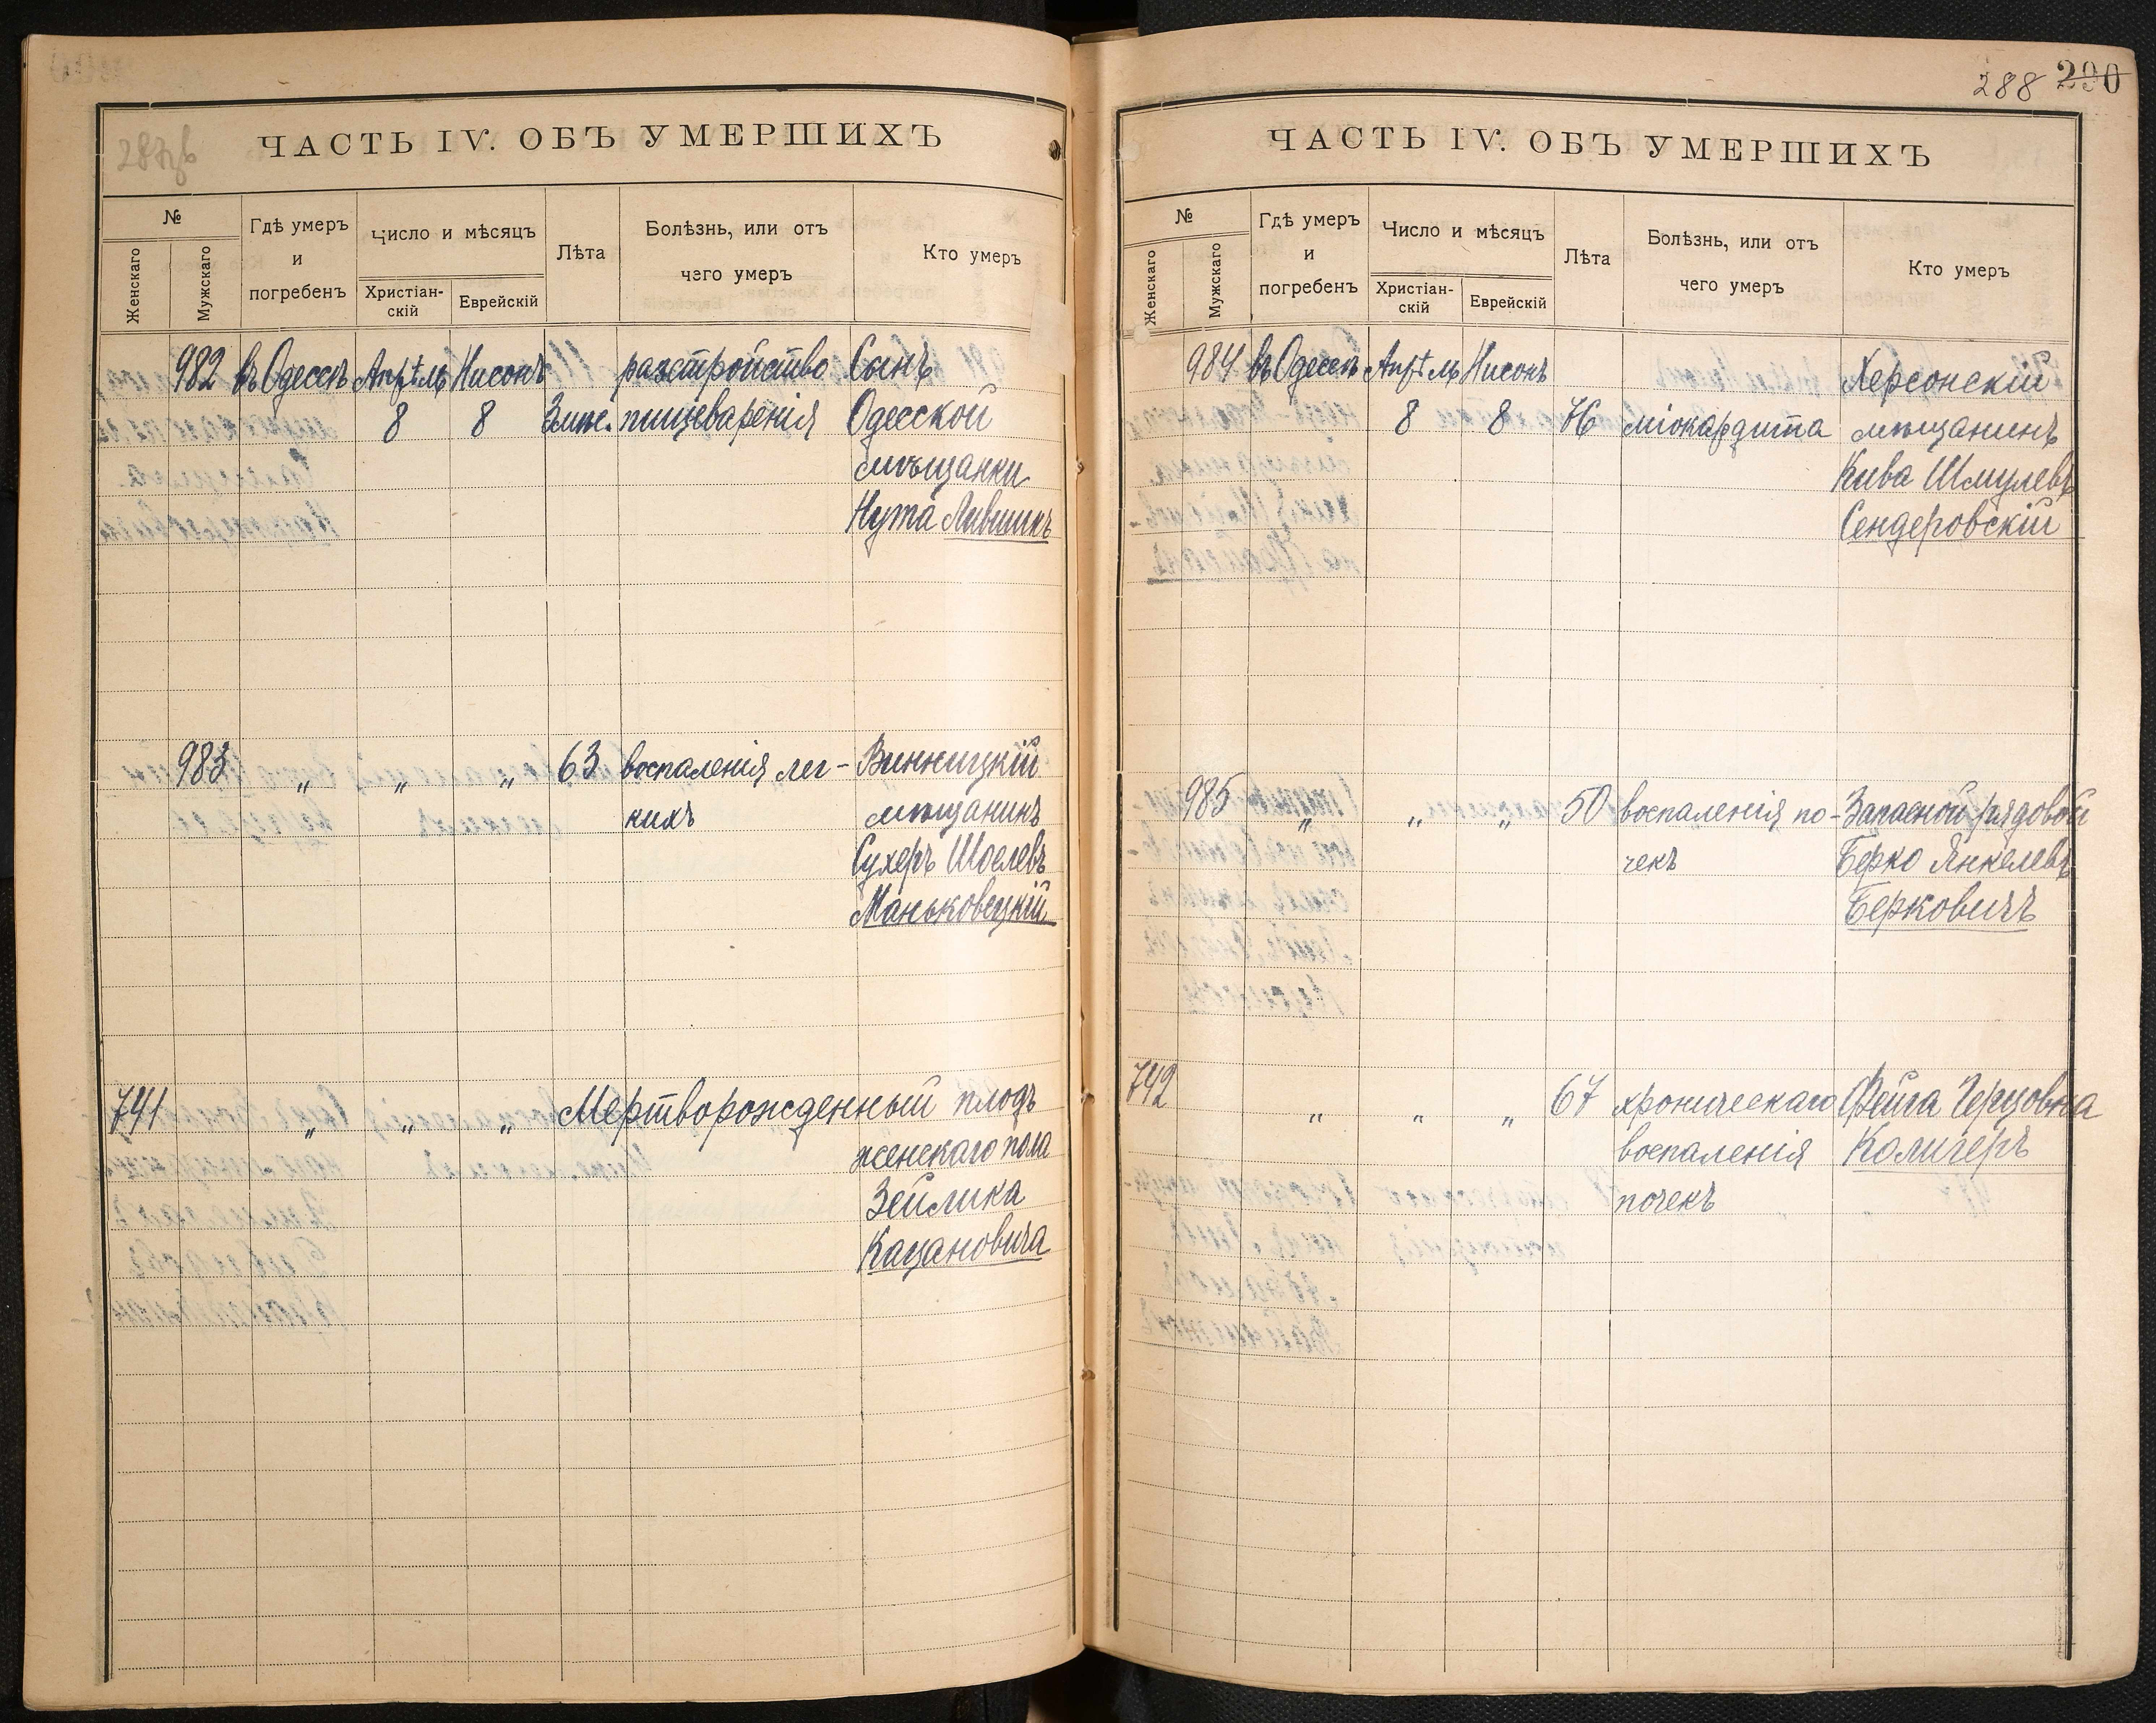 287об
ЧАСТЬ IV. ОБЪ УМЕРШИХЪ
№
Женскаго
Мужскаго
Гдѣ умеръ
и
погребенъ
Число и мѣсяцъ
Христіан-
скій
Еврейскій
Лѣта
Болѣзнь, или отъ
чего умеръ
Кто умеръ
982 въ Одессѣ Апрѣль Нисонъ разстройство Сынъ
8 8 3 мѣс. пищеваренія Одесской
мѣщанки
Нута Лившикъ
983 „ „ „ 63 воспаленія лег- Винницкій
кихъ мѣщанинъ
Сухеръ Шоелевъ
Маньковецкій
741 „ „ „ Мертворожденный плодъ
женскаго пола
Зейлика
Кацановича
288 290
ЧАСТЬ IV. ОБЪ УМЕРШИХЪ
№
Женскаго
Мужскаго
Гдѣ умеръ
и
погребенъ
Число и мѣсяцъ
Христіан-
скій
Еврейскій
Лѣта
Болѣзнь, или отъ
чего умеръ
Кто умеръ
984 въ Одессѣ Апрѣль Нисонъ Херсонскій
8 8 76 міокардита мѣщанинъ
Кива Шмулевъ
Сендеровскій
985 „ „ „ 50 воспаленія по- Запасной рядовой
чекъ Берко Янкелевъ
Берковичъ
742 „ „ „ 67 хроническаго Фейга Герцовна
воспаленія Колигеръ
почекъ